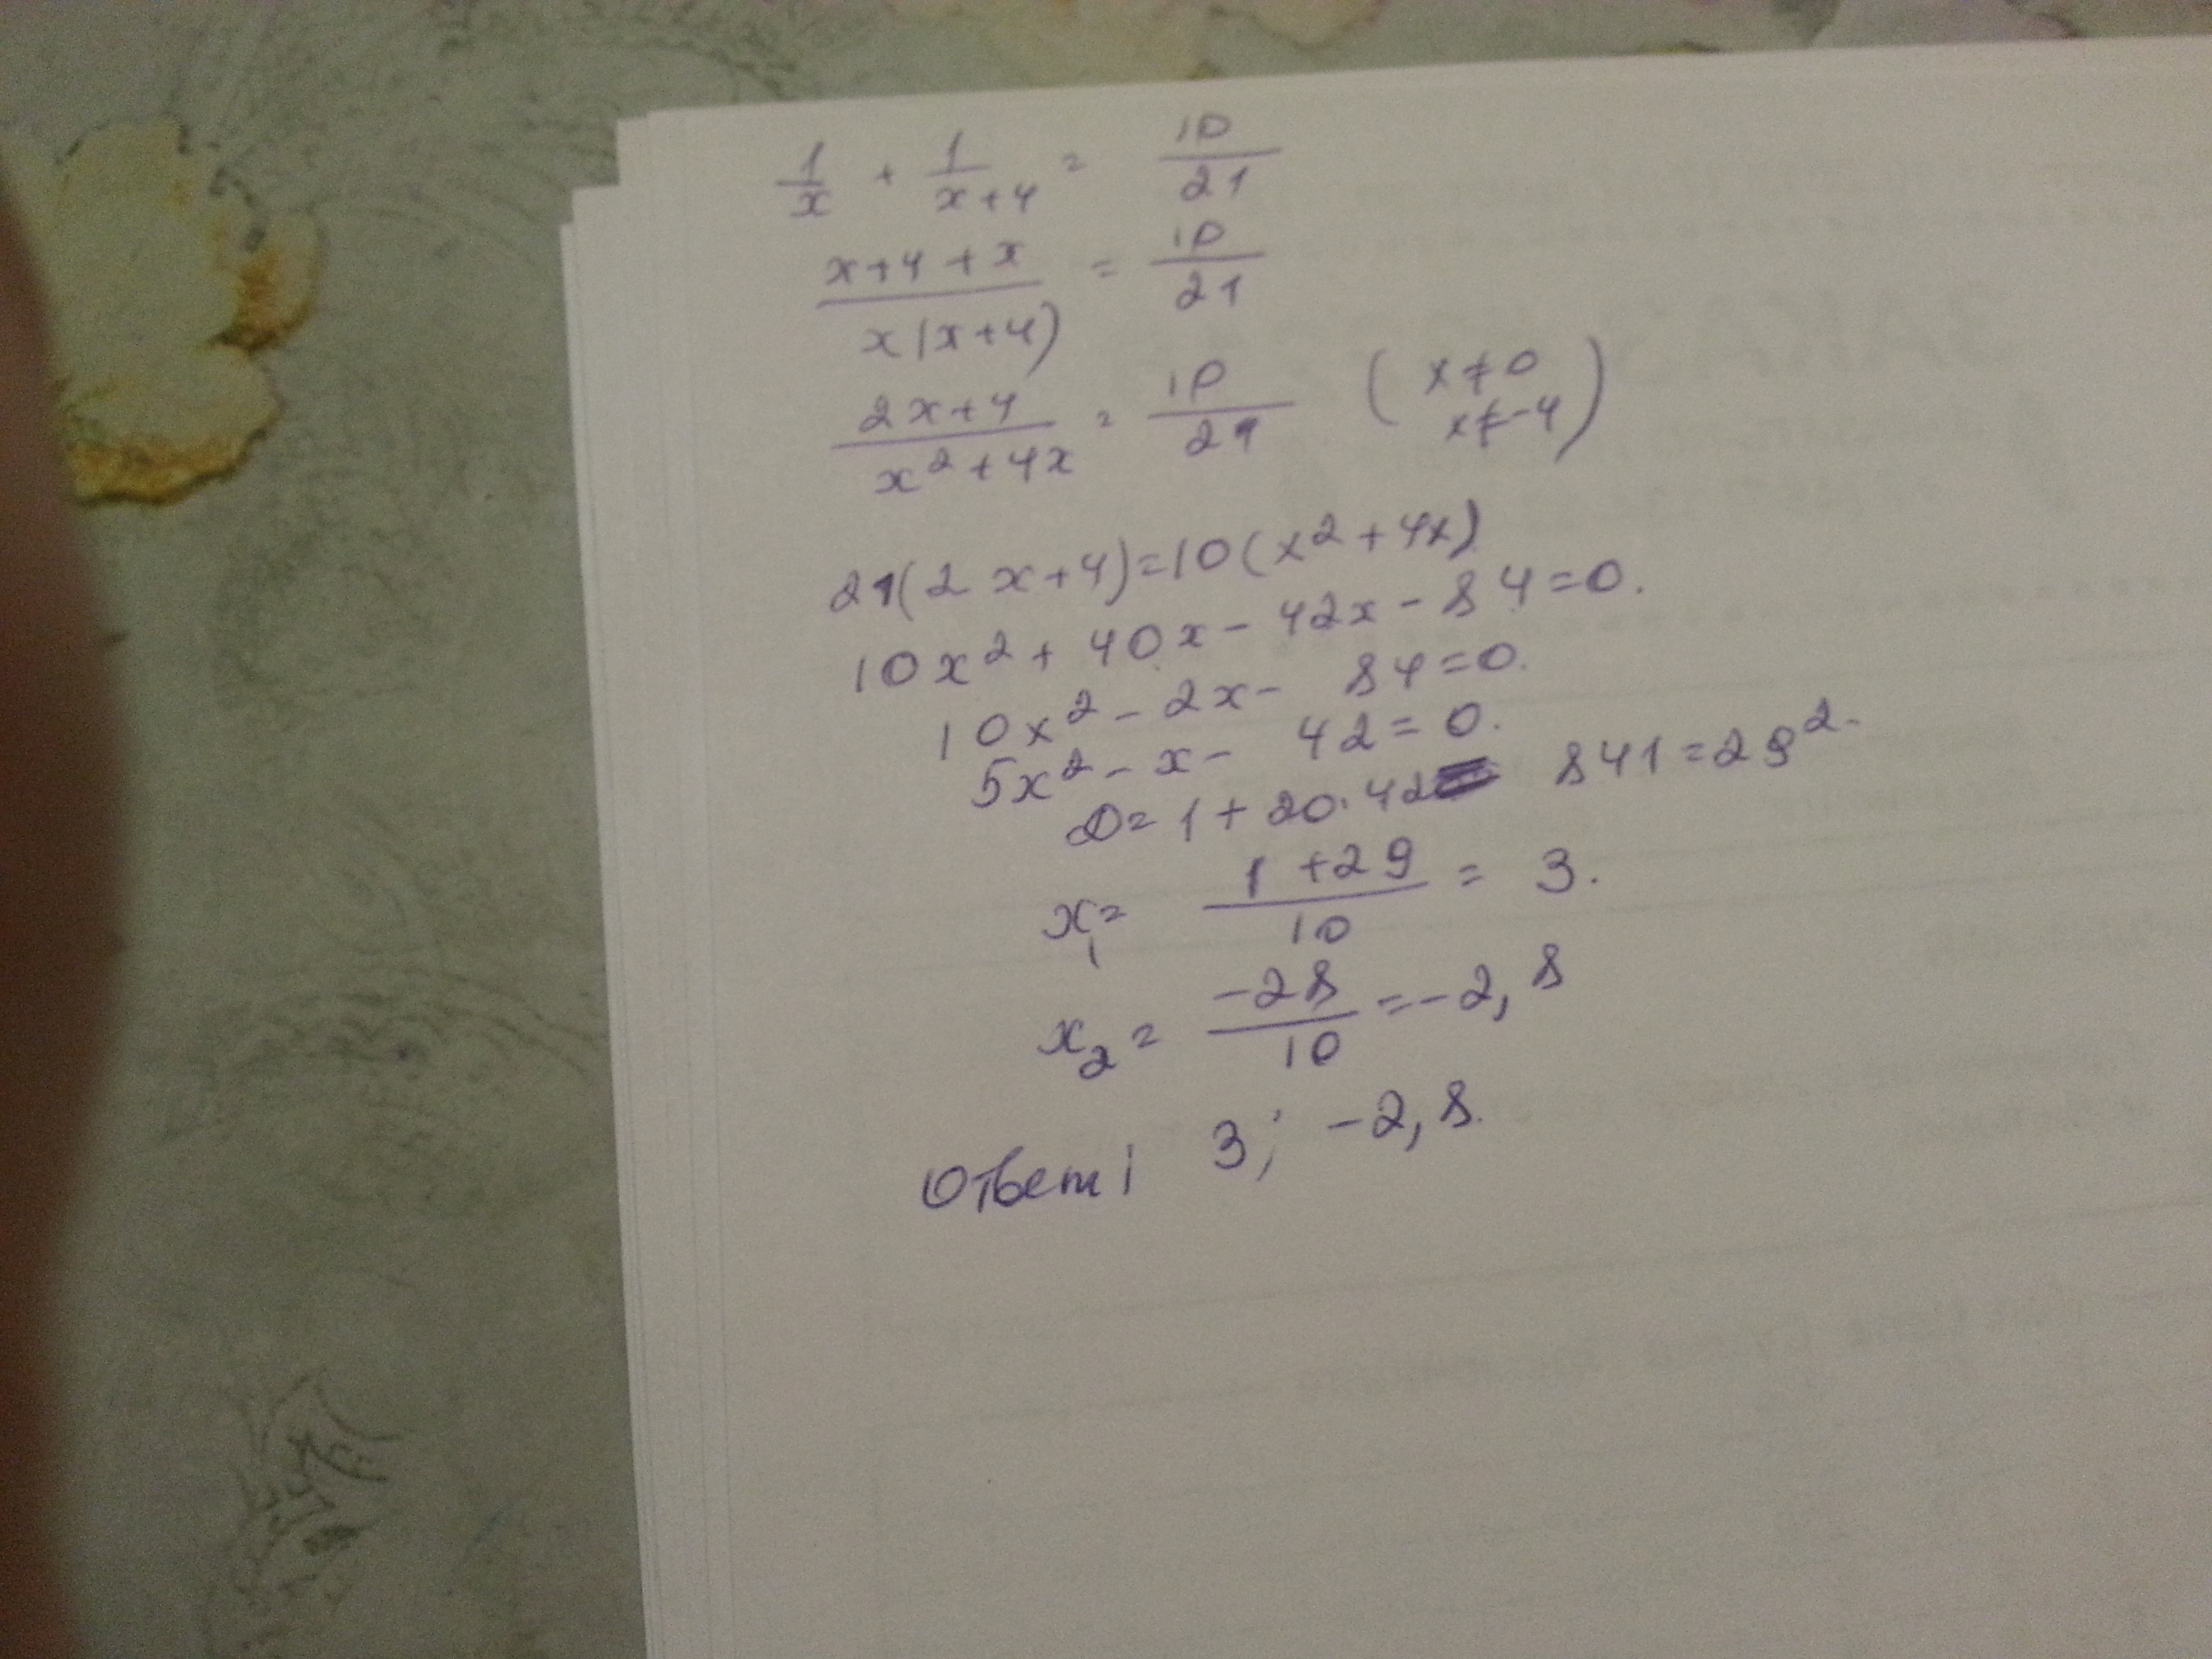 1/x + 1/(x+4) = 10/21
(x+4+x)/(x(x+4)) = 10/21
(2x+4)/(x²+4x) = 10/21 (x≠0 x≠-4)
21(2x+4)=10(x²+4x)
10x²+40x-42x-84=0.
10x²-2x-84=0.
5x²-x-42=0.
D=1+20·42 841=29².
x₁= (1+29)/10 = 3.
x₂= -28/10 =-2,8
Ответ: 3; -2,8.